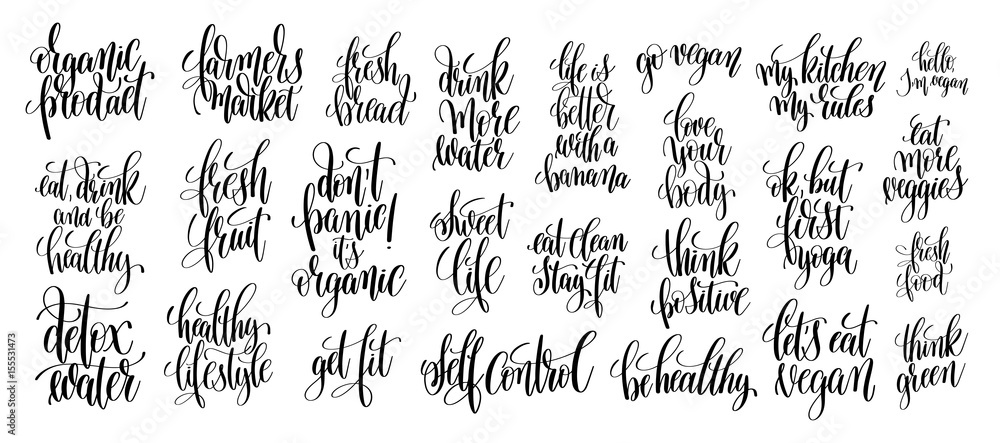 organic
product
eat, drink
and be
healthy
detox
water
farmers
market
fresh
fruit
healthy
lifestyle
fresh
bread
don't
panic!
it's
organic
get fit
drink
more
water
sweet
life
self control
life is
better
with a
banana
eat clean
stay fit
go vegan
love
your
body
think
positive
be healthy
my kitchen
my rules
ok, but
first
yoga
let's eat
vegan
hello,
I'm vegan
eat
more
veggies
fresh
food
think
green
Adobe Stock | #155531473
Adobe Stock